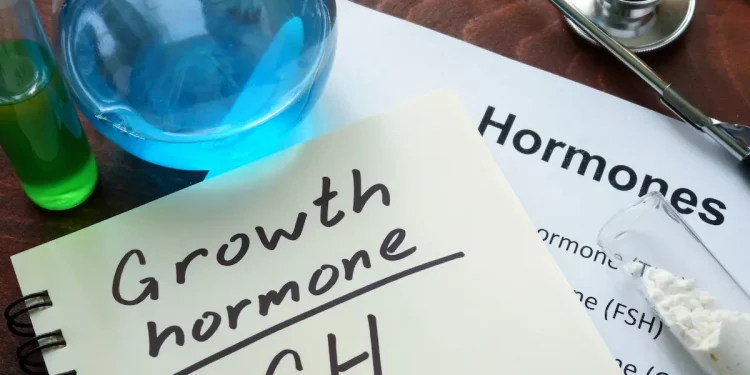 Growth
hormone
GH
Hormones
ormone (T
ne (FSH)
ne (